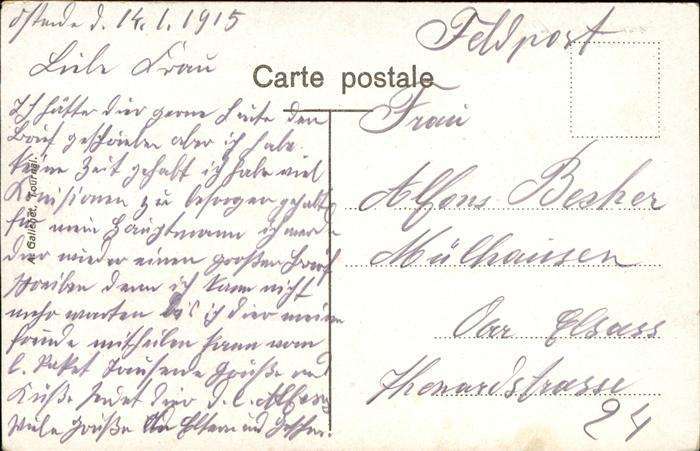 Ostende d. 14.1.1915
Liebe Frau
Ich hätte dir gerne heute den
Brief geschrieben aber ich habe
keine Zeit gehabt ich habe viel
Komisionen zu besorgen gehabt
für mein Hauptmann ich werde
dir wieder einen großen Brief
schreiben denn ich kann nicht
mehr warten bis ich dir meine
freude mitheilen kann vom
l. Paket Tausend Grüße und
Küße sendet dir d. l. Alfons
Viele Grüße an Eltern und
Carte postale
A. Gallenet, Tournai.
Feldpost
Frau
Alfons Becher
Mülhausen
Ober Elsass
Thenardstrasse
24